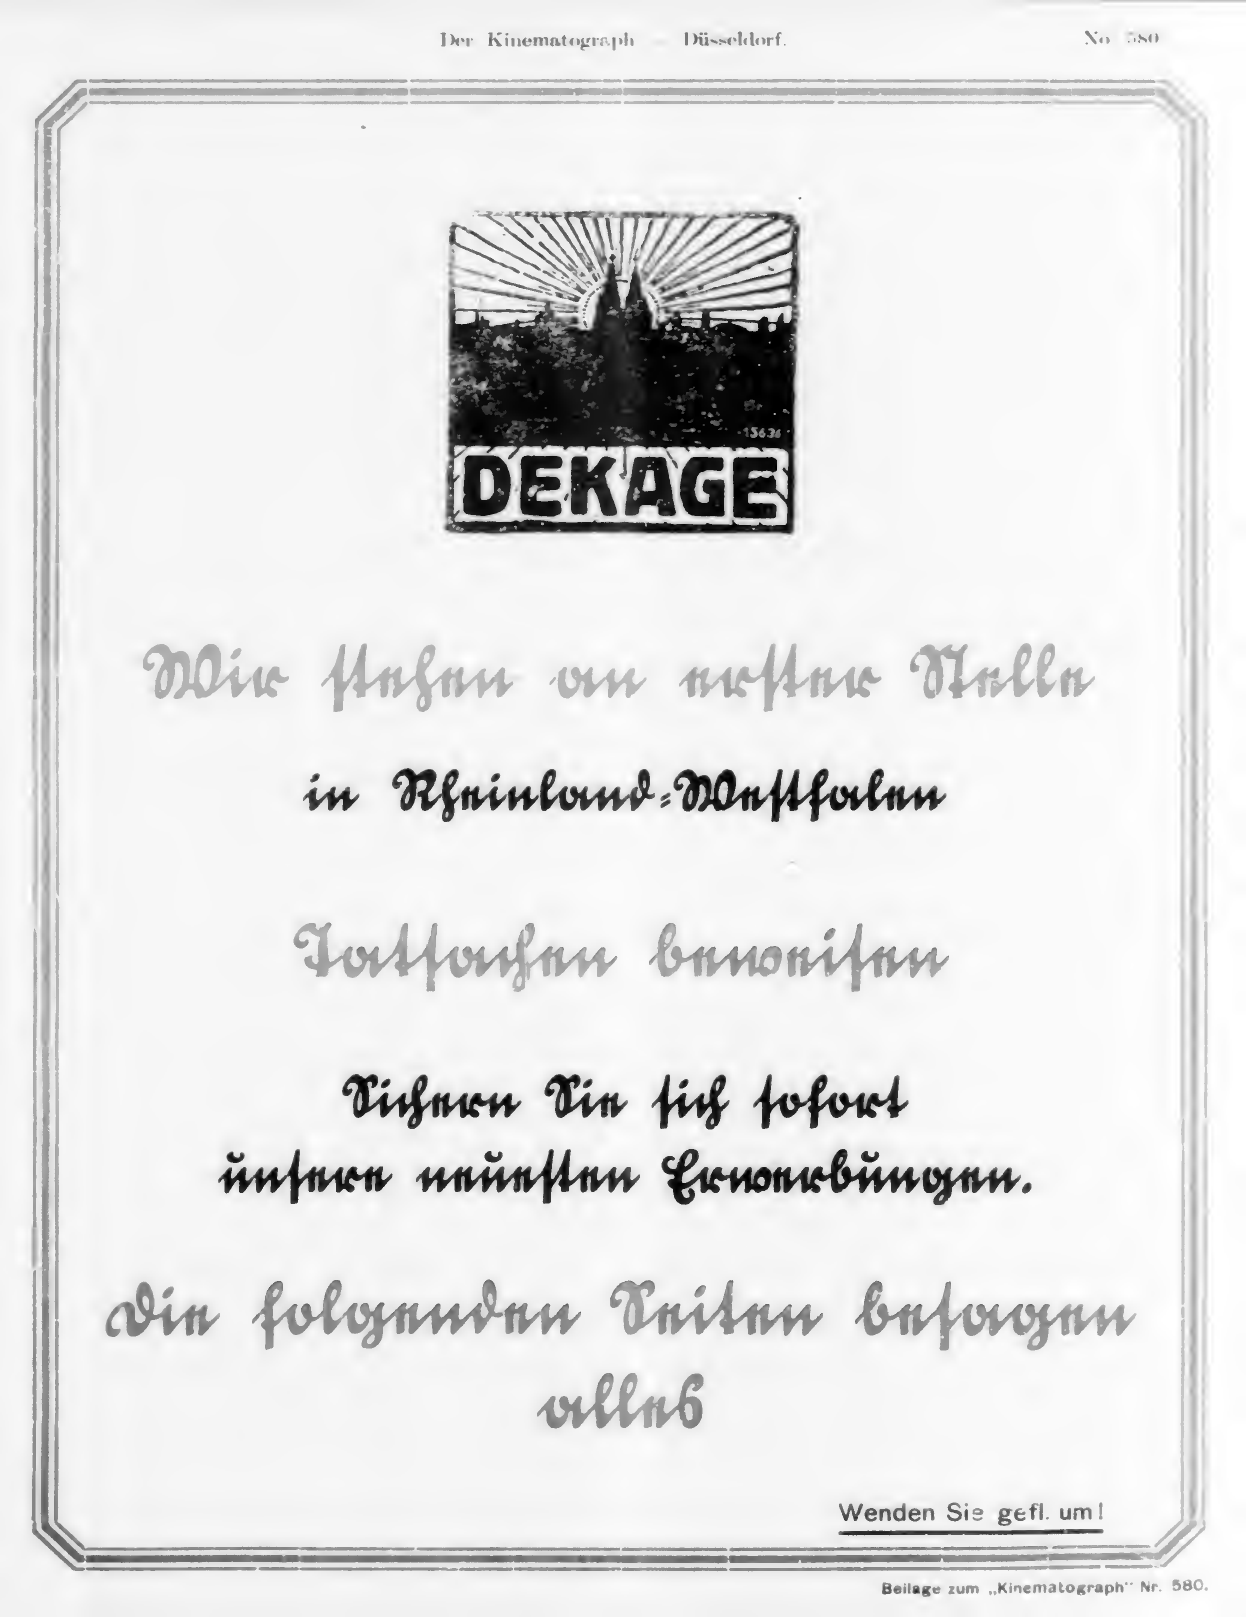 Der Kinematograph — Düsseldorf.
No. 580
15636
DEKAGE
Wir stehen an erster Stelle
in Rheinland-Westfalen
Tatsachen beweisen
Sichern Sie sich sofort
unsere neuesten Erwerbungen.
Die folgenden Seiten besagen
alles
Wenden Sie gefl. um!
Beilage zum „Kinematograph" Nr. 580.